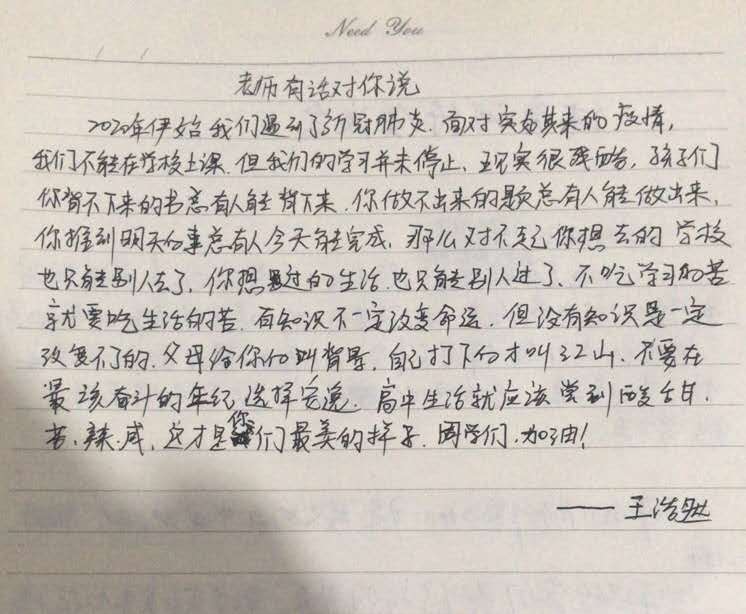 Need You
老师有话对你说
2020年伊始我们遇到了新冠肺炎.面对突如其来的疫情,
我们不能在学校上课.但我们的学习并未停止、现实很残酷,孩子们
你背不下来的书总有人能背下来.你做不出来的题总有人能做出来,
你推到明天的事总有人今天能完成.那么对不起你想去的学校
也只能别人去了,你想过的生活.也只能别人过了、不吃学习的苦
就要吃生活的苦.有知识不一定改变命运.但没有知识是一定
改变不了的.父母给你的叫背景.自己打下的才叫江山.不要在
最该奋斗的年纪选择安逸.高中生活就应该尝到酸、甘.
苦、辣.咸,这才是你们最美的样子.同学们.加油!
——王浩然